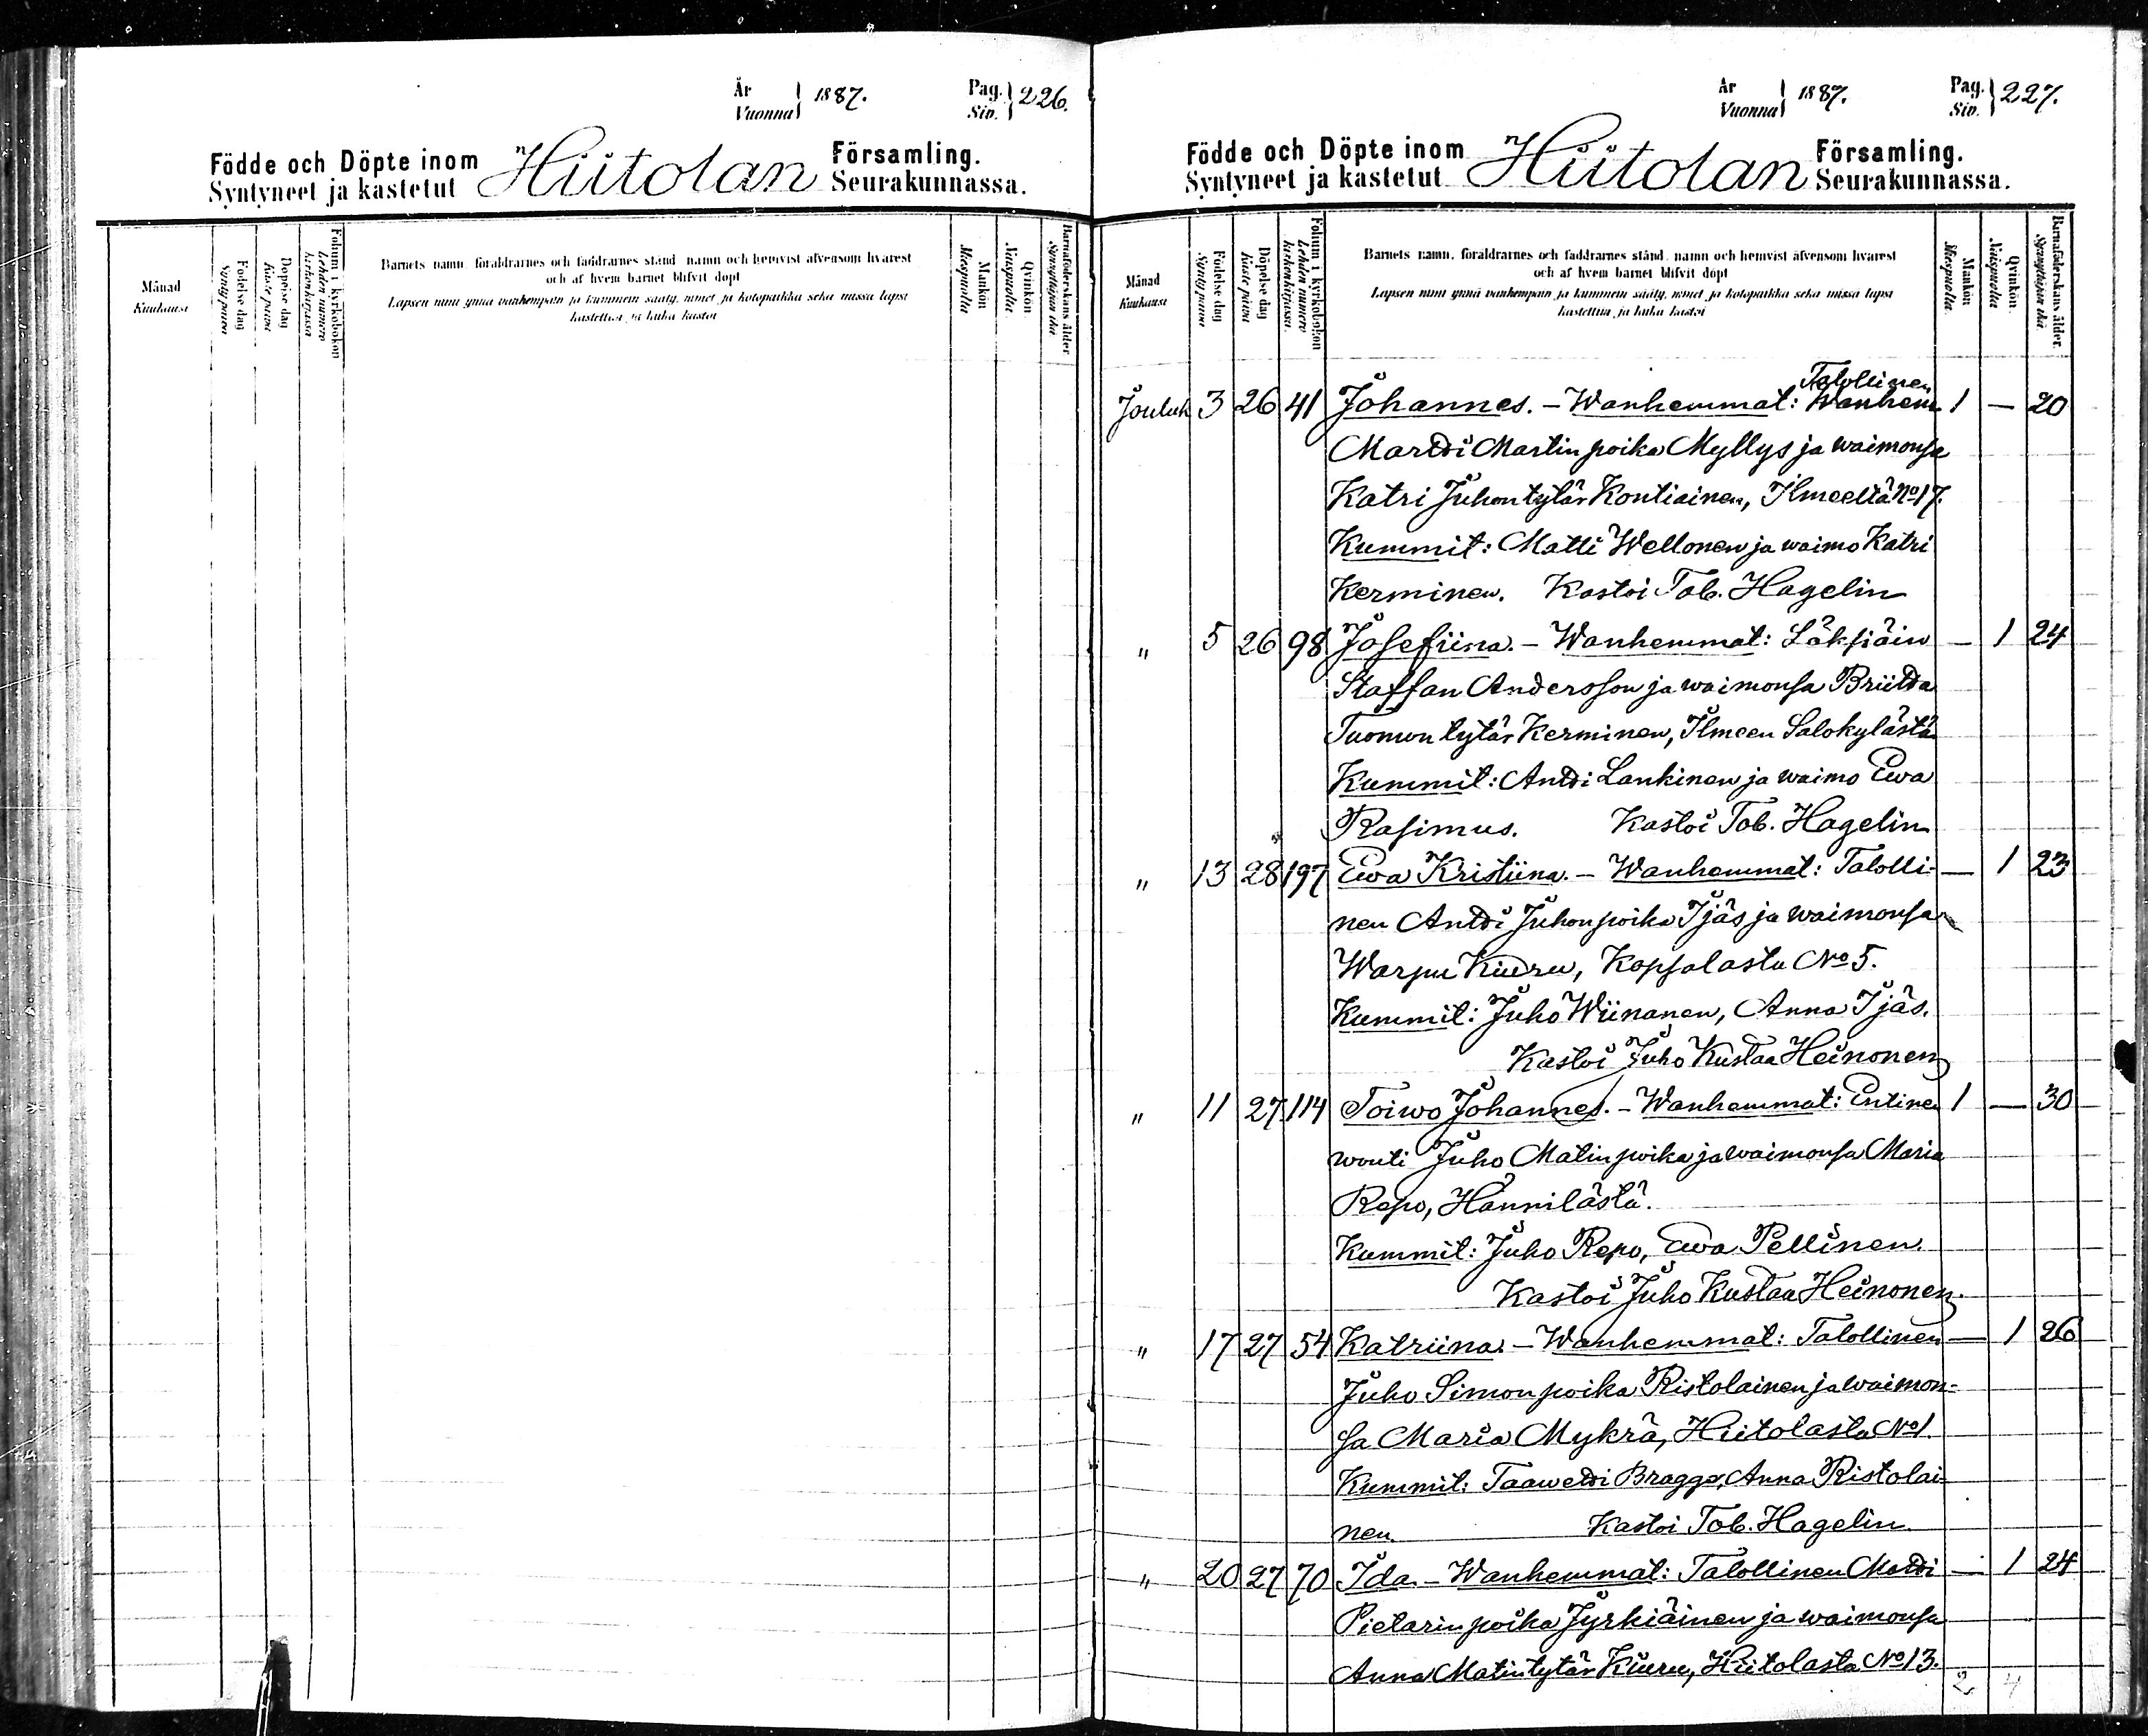 År
Vuonna } 1887.
Pag.
Siv. } 226.
Födde och Döpte inom
Syntyneet ja kastetut
Hiitolan
Församling.
Seurakunnassa.
Månad
Kuukausi
Födelse dag
Synty päivä
Döpelse dag
Kaste päivä
Folium i kyrkoboken
Lehden numero kirkonkirjassa
Barnets namn, föräldrarnes och faddrarnes stånd, namn och hemvist äfvensom hvarest
och af hvem barnet blifvit döpt
Lapsen nimi ynnä vanhempain ja kummein sääty, nimet ja kotopaikka sekä missä lapsi
kastettiin ja kuka kastoi
Mankön
Miespuolta
Qvinkön
Naispuolta
Barnaföderskans ålder
Synnyttäjän ikä
År
Vuonna } 1887.
Pag.
Siv. } 227.
Födde och Döpte inom
Syntyneet ja kastetut
Hiitolan
Församling.
Seurakunnassa.
Månad
Kuukausi
Födelse dag
Synty päivä
Döpelse dag
Kaste päivä
Folium i kyrkoboken
Lehden numero kirkonkirjassa.
Barnets namn, föräldrarnes och faddrarnes stånd, namn och hemvist äfvensom hvarest
och af hvem barnet blifvit döpt
Lapsen nimi ynnä vanhempain ja kummein sääty, nimet ja kotopaikka sekä missä lapsi
kastettiin ja kuka kastoi
Mankön
Miespuolta.
Qvinkön.
Naispuolta
Barnaföderskans ålder.
Synnyttäjän ikä
Talollinen
Jouluk 3 26 41 Johannes. – Wanhemmat: Wanhem 1 — 20
Martti Martinpoika Myllys ja waimonsa
Katri Juhontytär Kontiainen, Ilmeeltä No 17.
Kummit: Matti Wellonen ja waimo Katri
Kerminen. Kastoi Tob. Hagelin
" 5 26 98 Josefiina. – Wanhemmat: Läksiäin — 1 24
Staffan Andersson ja waimonsa Briitta
Tuomontytär Kerminen, Ilmeen Salokylästä
Kummit: Antti Lankinen ja waimo Ewa
Rasimus. Kastoi Tob. Hagelin
" 13 28 197 Ewa Kristiina. – Wanhemmat: Talolli- — 1 23
nen Antti Juhonpoika Ijäs ja waimonsa
Warpu Kiuru, Kopsalasta No 5.
Kummit: Juho Wiinanen, Anna Ijäs.
Kastoi Juho Kustaa Heinonen
" 11 27 114 Toiwo Johannes. – Wanhemmat: Entinen 1 — 30
wouti Juho Matinpoika ja waimonsa Maria
Repo, Hännilästä.
Kummit: Juho Repo, Ewa Pellinen.
Kastoi Juho Kustaa Heinonen.
" 17 27 54 Katriina. – Wanhemmat: Talollinen — 1 26
Juho Simonpoika Ristolainen ja waimon-
sa Maria Mykrä, Hiitolasta No 1.
Kummit: Taawetti Bragge, Anna Ristolai
nen. Kastoi Tob. Hagelin.
" 20 27 70 Ida. – Wanhemmat: Talollinen Matti — 1 24
Pietarinpoika Jyrkiäinen ja waimonsa
Anna Matintytär Kiuru, Hiitolasta No 13.
2 4